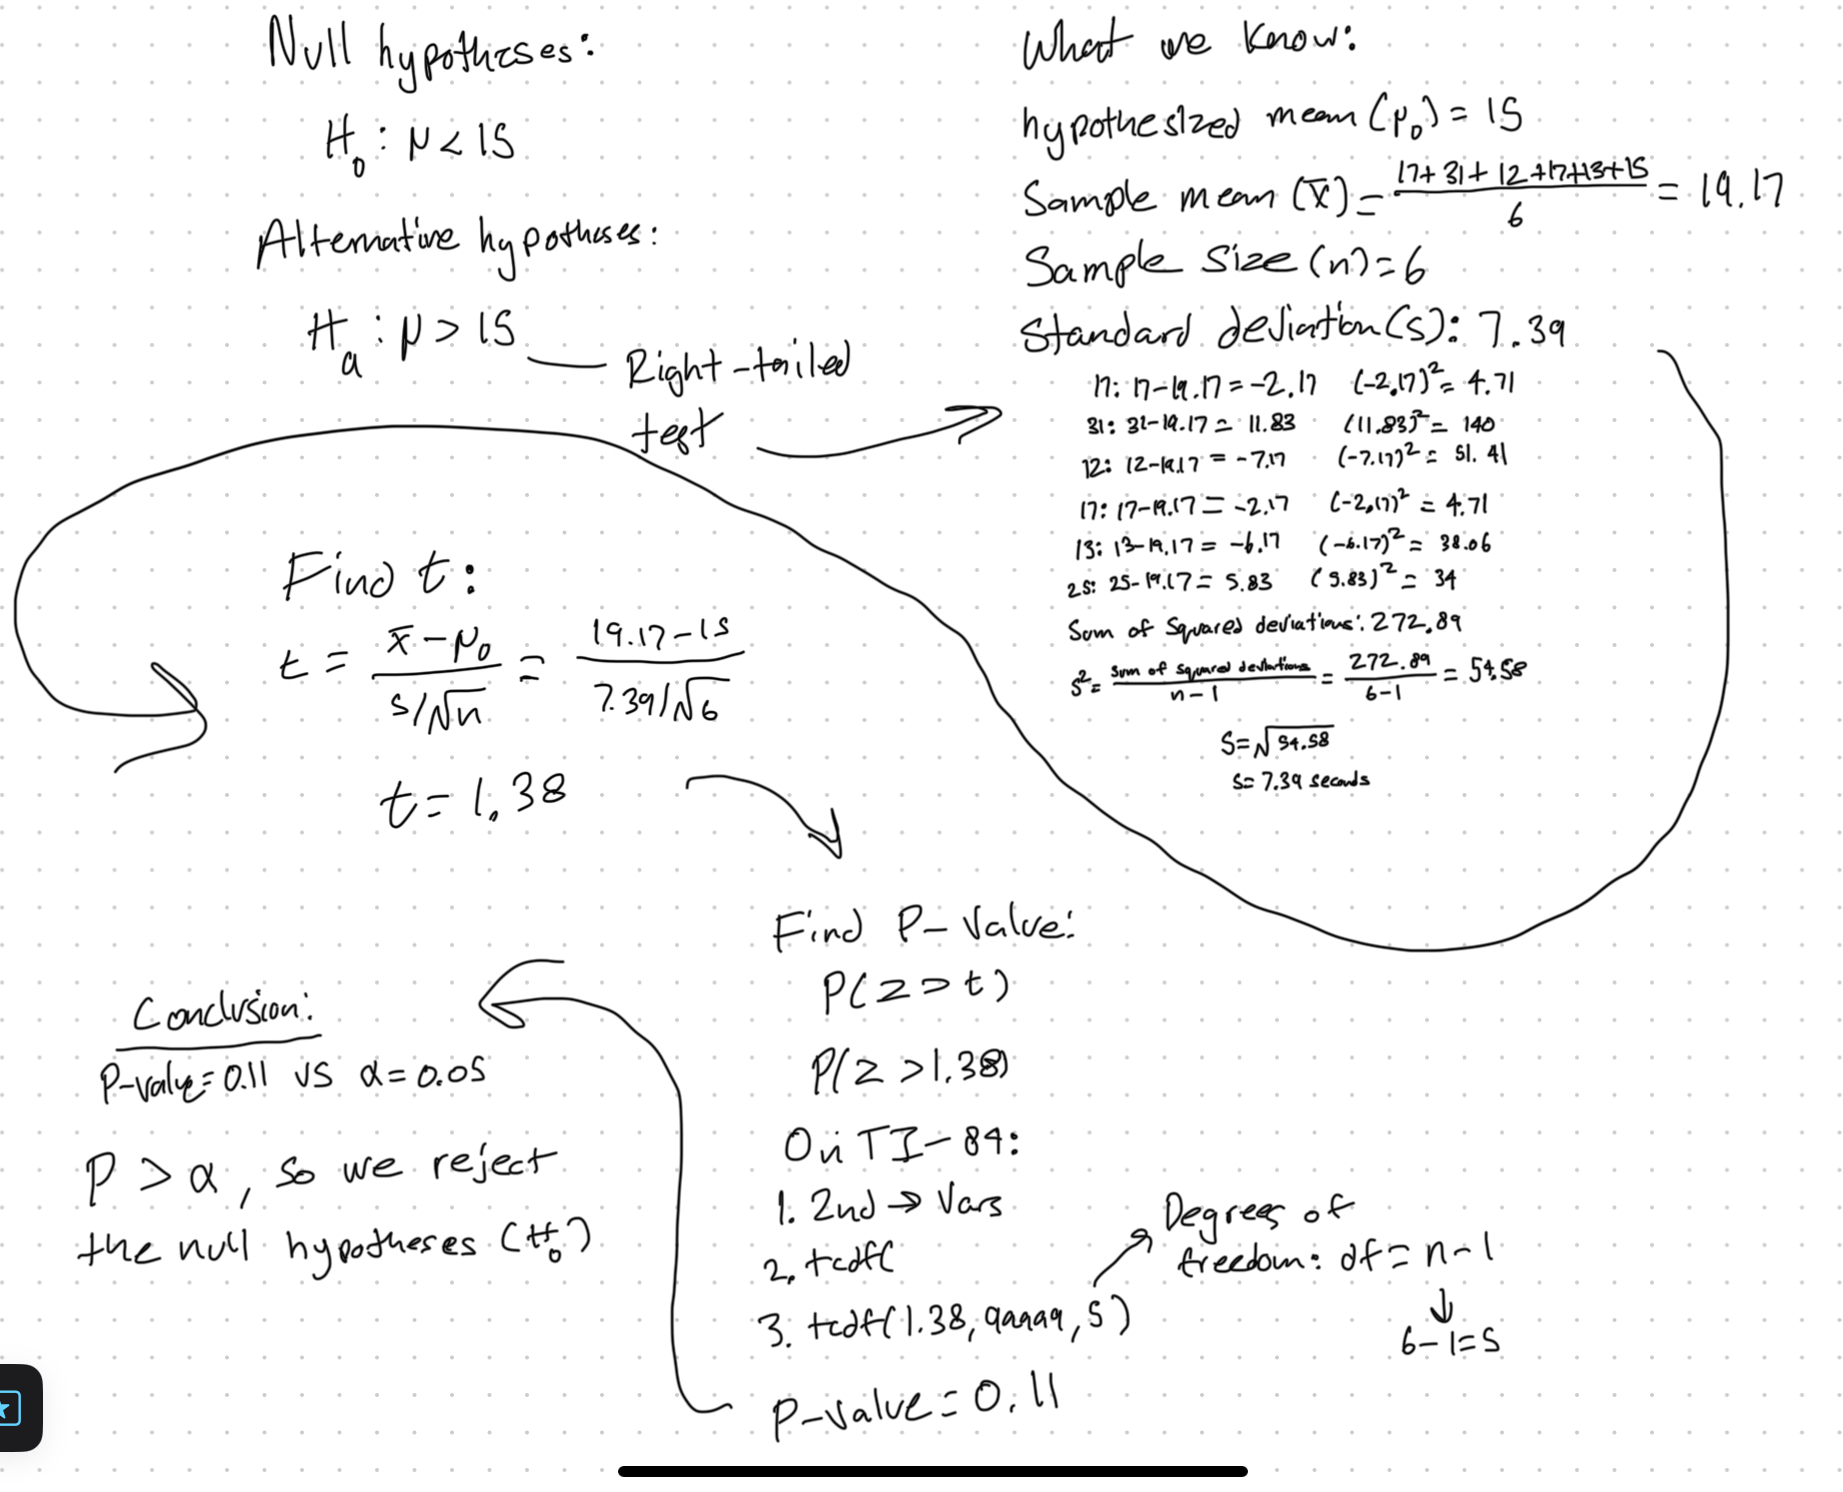 Null hypotheses:
H₀: μ < 15
Alternative hypotheses:
Hₐ: μ > 15
Right-tailed
test
What we know:
hypothesized mean (μ₀) = 15
Sample mean (x̄) = (17+31+12+17+13+15)/6 = 19.17
Sample Size (n) = 6
Standard deviation (s): 7.39
17: 17-19.17 = -2.17 (-2.17)² = 4.71
31: 31-19.17 = 11.83 (11.83)² = 140
12: 12-19.17 = -7.17 (-7.17)² = 51.41
17: 17-19.17 = -2.17 (-2.17)² = 4.71
13: 13-19.17 = -6.17 (-6.17)² = 38.06
25: 25-19.17 = 5.83 (5.83)² = 34
Sum of Squared deviations: 272.89
s² = sum of squared deviations/n-1 = 272.89/6-1 = 54.58
S = √54.58
s = 7.39 seconds
Find t:
t = (x̄ - μ₀)/(s/√n) = (19.17-15)/(7.39/√6)
t = 1.38
Find P-Value:
P(z > t)
P(z > 1.38)
On TI-84:
1. 2nd → Vars
2. tcdf(
3. tcdf(1.38, 99999, 5)
Degrees of
freedom: df = n-1
↓
6-1 = 5
P-value = 0.11
Conclusion:
P-value = 0.11 vs α = 0.05
P > α, so we reject
the null hypotheses (H₀)